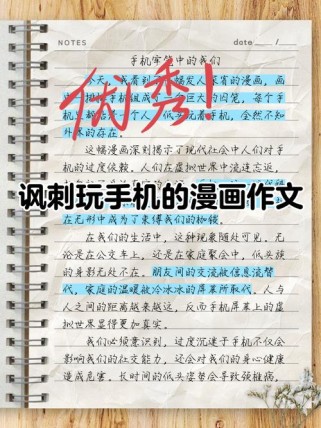 NOTES
date
手机牢笼中的我们
今天,我看到一幅发人深省的漫画,画
优秀!
外界的存在。
这幅漫画深刻揭示了现代社会中人们对手
机的过度依赖。人们在虚拟世界中流连忘返,
讽刺玩手机的漫画作文
在无形中成为了束缚我们的枷锁。
在我们的生活中,这种现象随处可见。无
论是在公交车上,还是在家庭聚会中,低头族
的身影无处不在。朋友间的交流被信息流替
代,家庭的温暖被冷冰冰的屏幕所取代。人与
人之间的距离越来越远,反而手机屏幕上的虚
拟世界显得更加真实。
我们必须意识到,过度沉迷于手机不仅会
影响我们的社交能力,还会对我们的身心健康
造成危害。长时间的低头姿势会导致颈椎病,